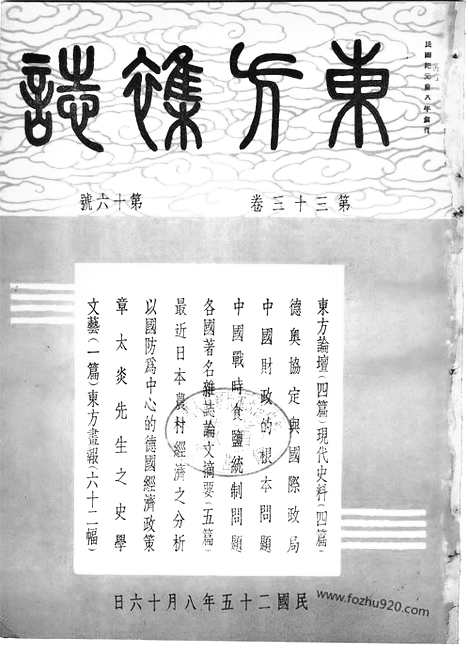 東方雜誌
第三十三卷
第十六號
東方論壇(四篇)現代史料(四篇)
德奧協定與國際政局
中國財政的根本問題
中國戰時食鹽統制問題
各國著名雜誌論文摘要(五篇)
最近日本農村經濟之分析
以國防爲中心的德國經濟政策
章太炎先生之史學
文藝(一篇)東方畫報(六十二幅)
民國二十五年八月十六日
www.fozhu920.com